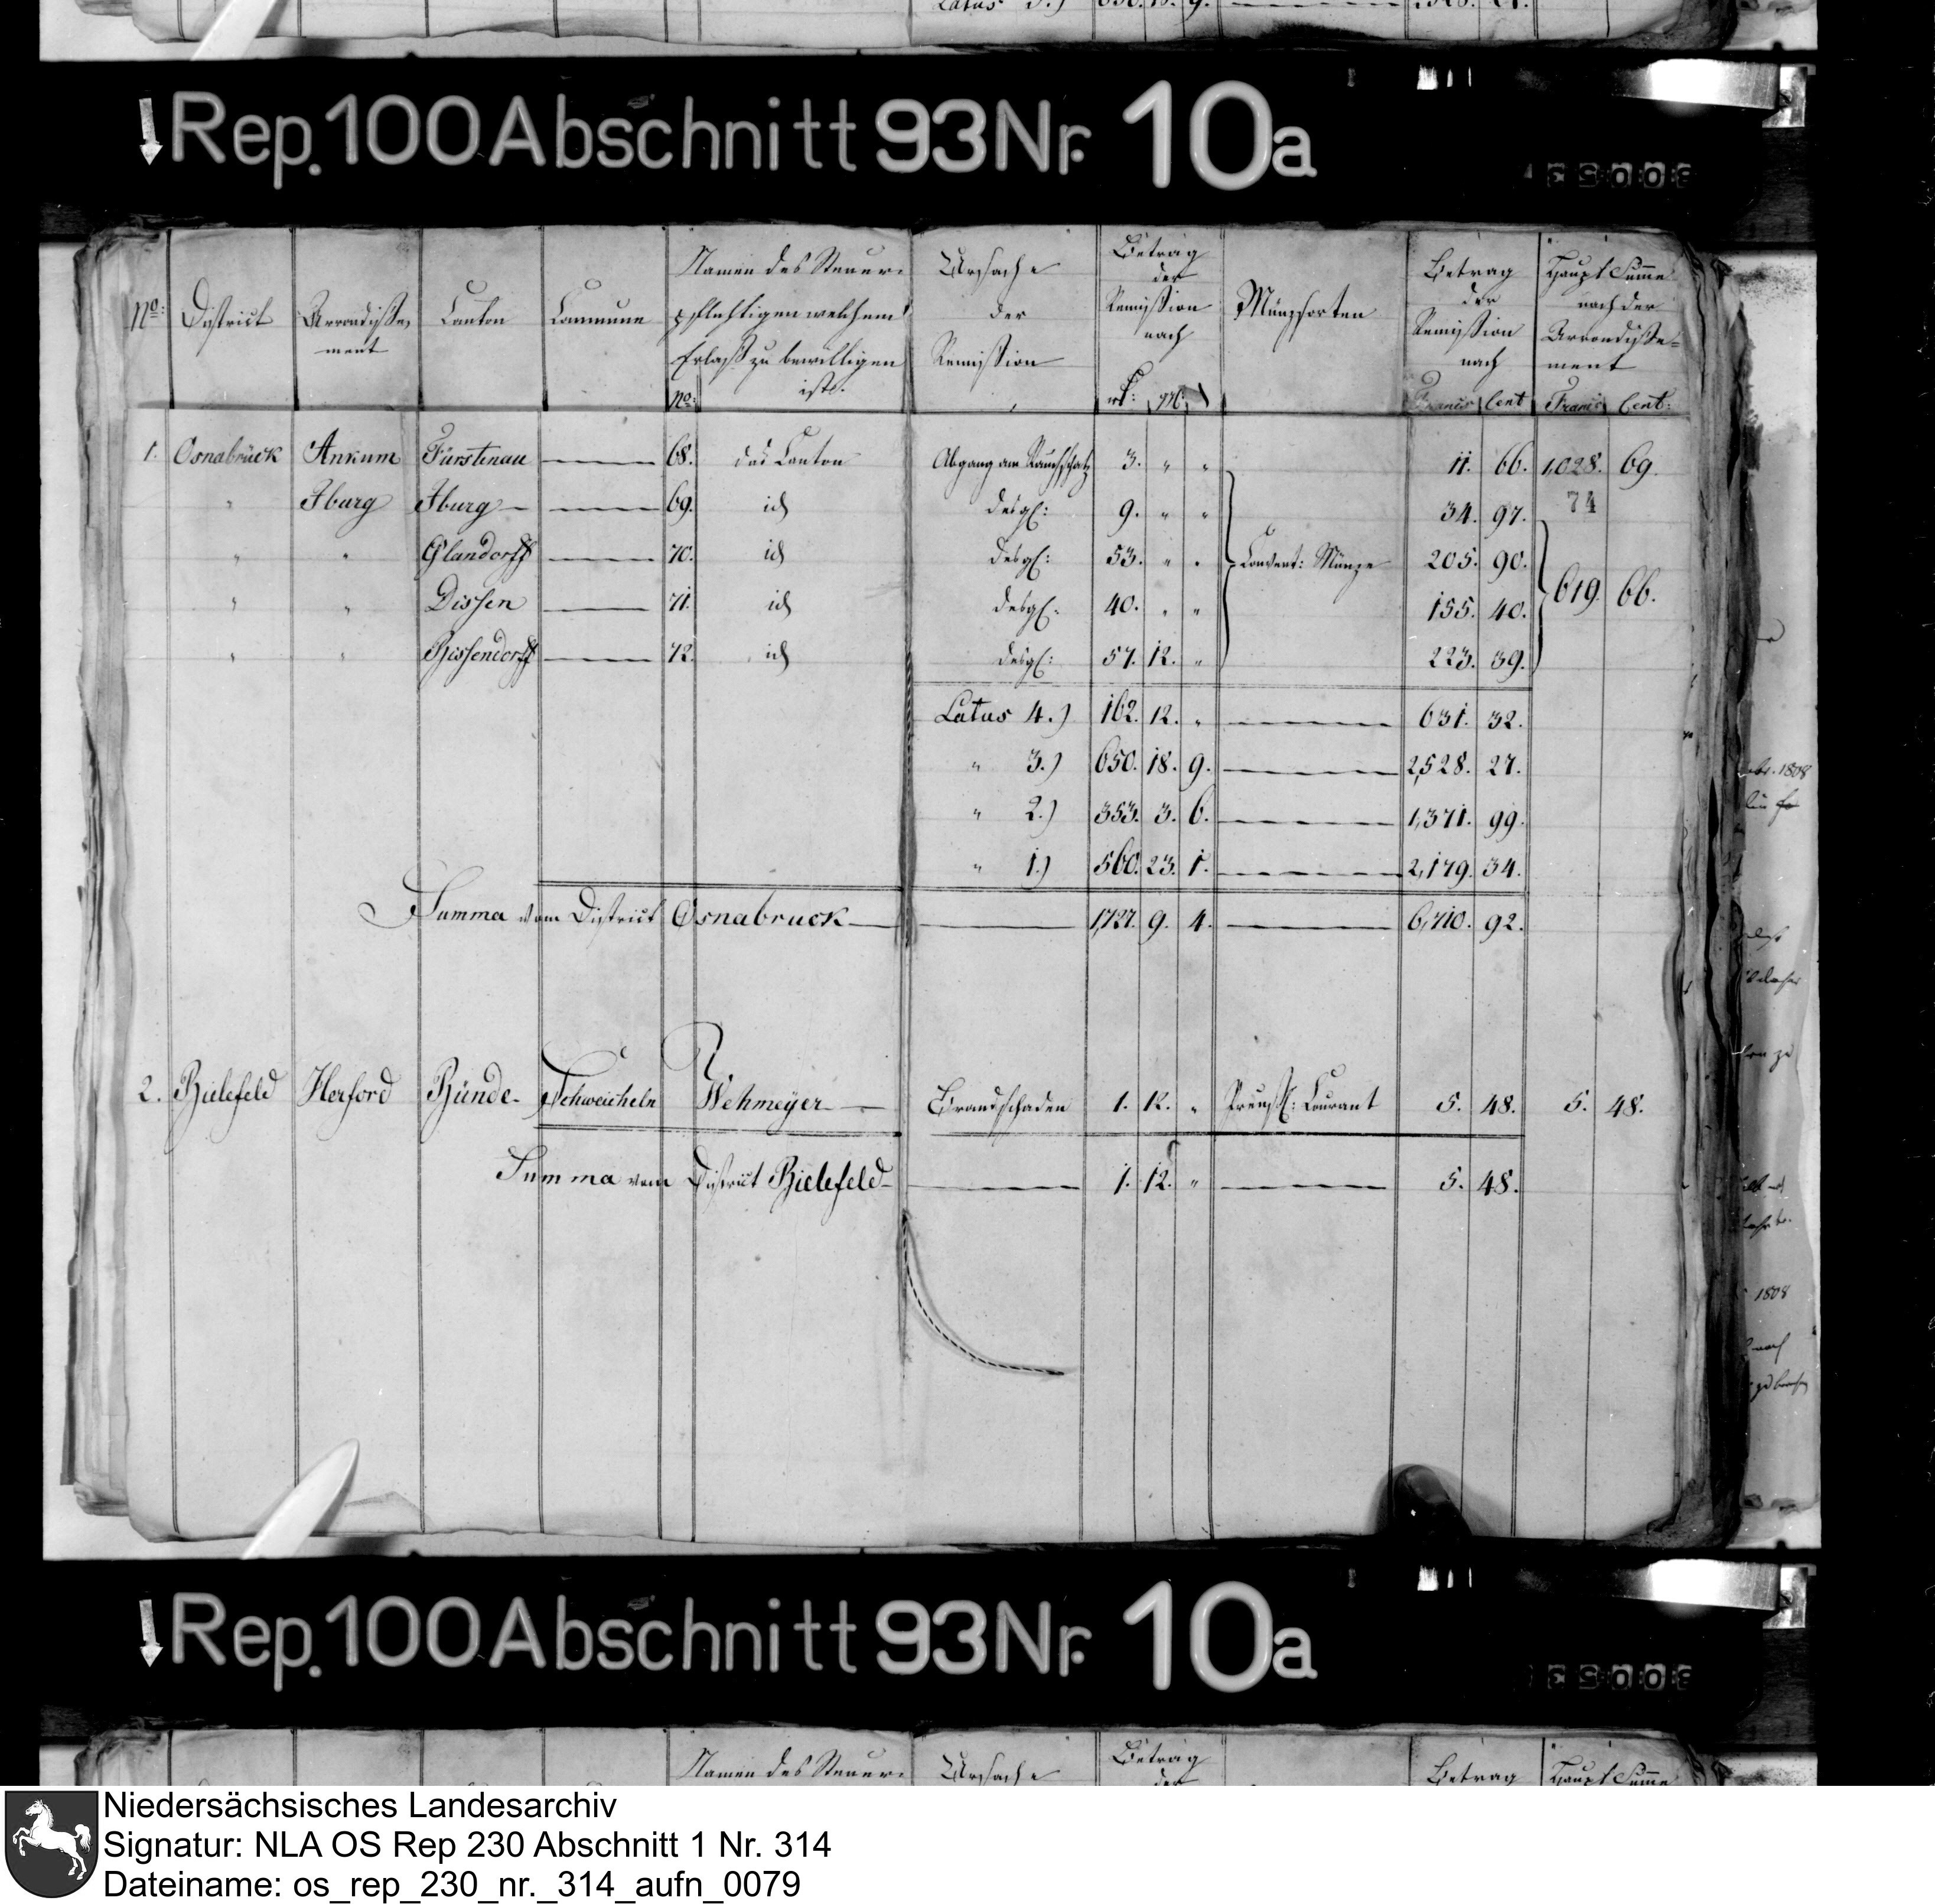 Latus 3.) 650. 18. 9. 2,528. 27.
Rep. 100 Abschnitt 93 Nr. 10a
No: District Arrondisse,ment Canton Commune No: Namen des Steuer,pflichtigen welchem Erlaß zu bewilligen ist. Ursache der Remission Betrag der Remission nach Münzsorten Betrag der Remission nach Francs Cent Haupt Summe nach der Arrondisse=ment Francs Cent:
1. Osnabrück Ankum Fürstenau 68. das Canton Abgang am Rauchschatz 3. " " 11. 66. 1,028. 69.
" Iburg Iburg 69. id desgl: 9. " " 34. 97. 74
" " Glandorff 70. id desgl: 53. " " Convent: Münze 205. 90.
" " Dissen 71. id desgl: 40. " " 155. 40. 619. 66.
" " Bissendorff 72. id desgl: 57. 12. " 223. 39.
Latus 4.) 162. 12. " 631. 32.
" 3.) 650. 18. 9. 2,528. 27.
" 2.) 353. 3. 6. 1,371. 99.
" 1.) 560. 23. 1. 2,179. 34.
Summa vom District Osnabruck 1,727. 9. 4. 6,710. 92.
2. Bielefeld Herford Bünde Schweicheln Wehmeyer Brandschaden 1. 12. " Preuss: Courant 5. 48. 5. 48.
Summa vom District Bielefeld 1. 12. " 5. 48.
1808
1808
Rep. 100 Abschnitt 93 Nr. 10a
Namen des Steuer, Ursache Betrag der Betrag Haupt Summe
Niedersächsisches Landesarchiv
Signatur: NLA OS Rep 230 Abschnitt 1 Nr. 314
Dateiname: os_rep_230_nr._314_aufn_0079